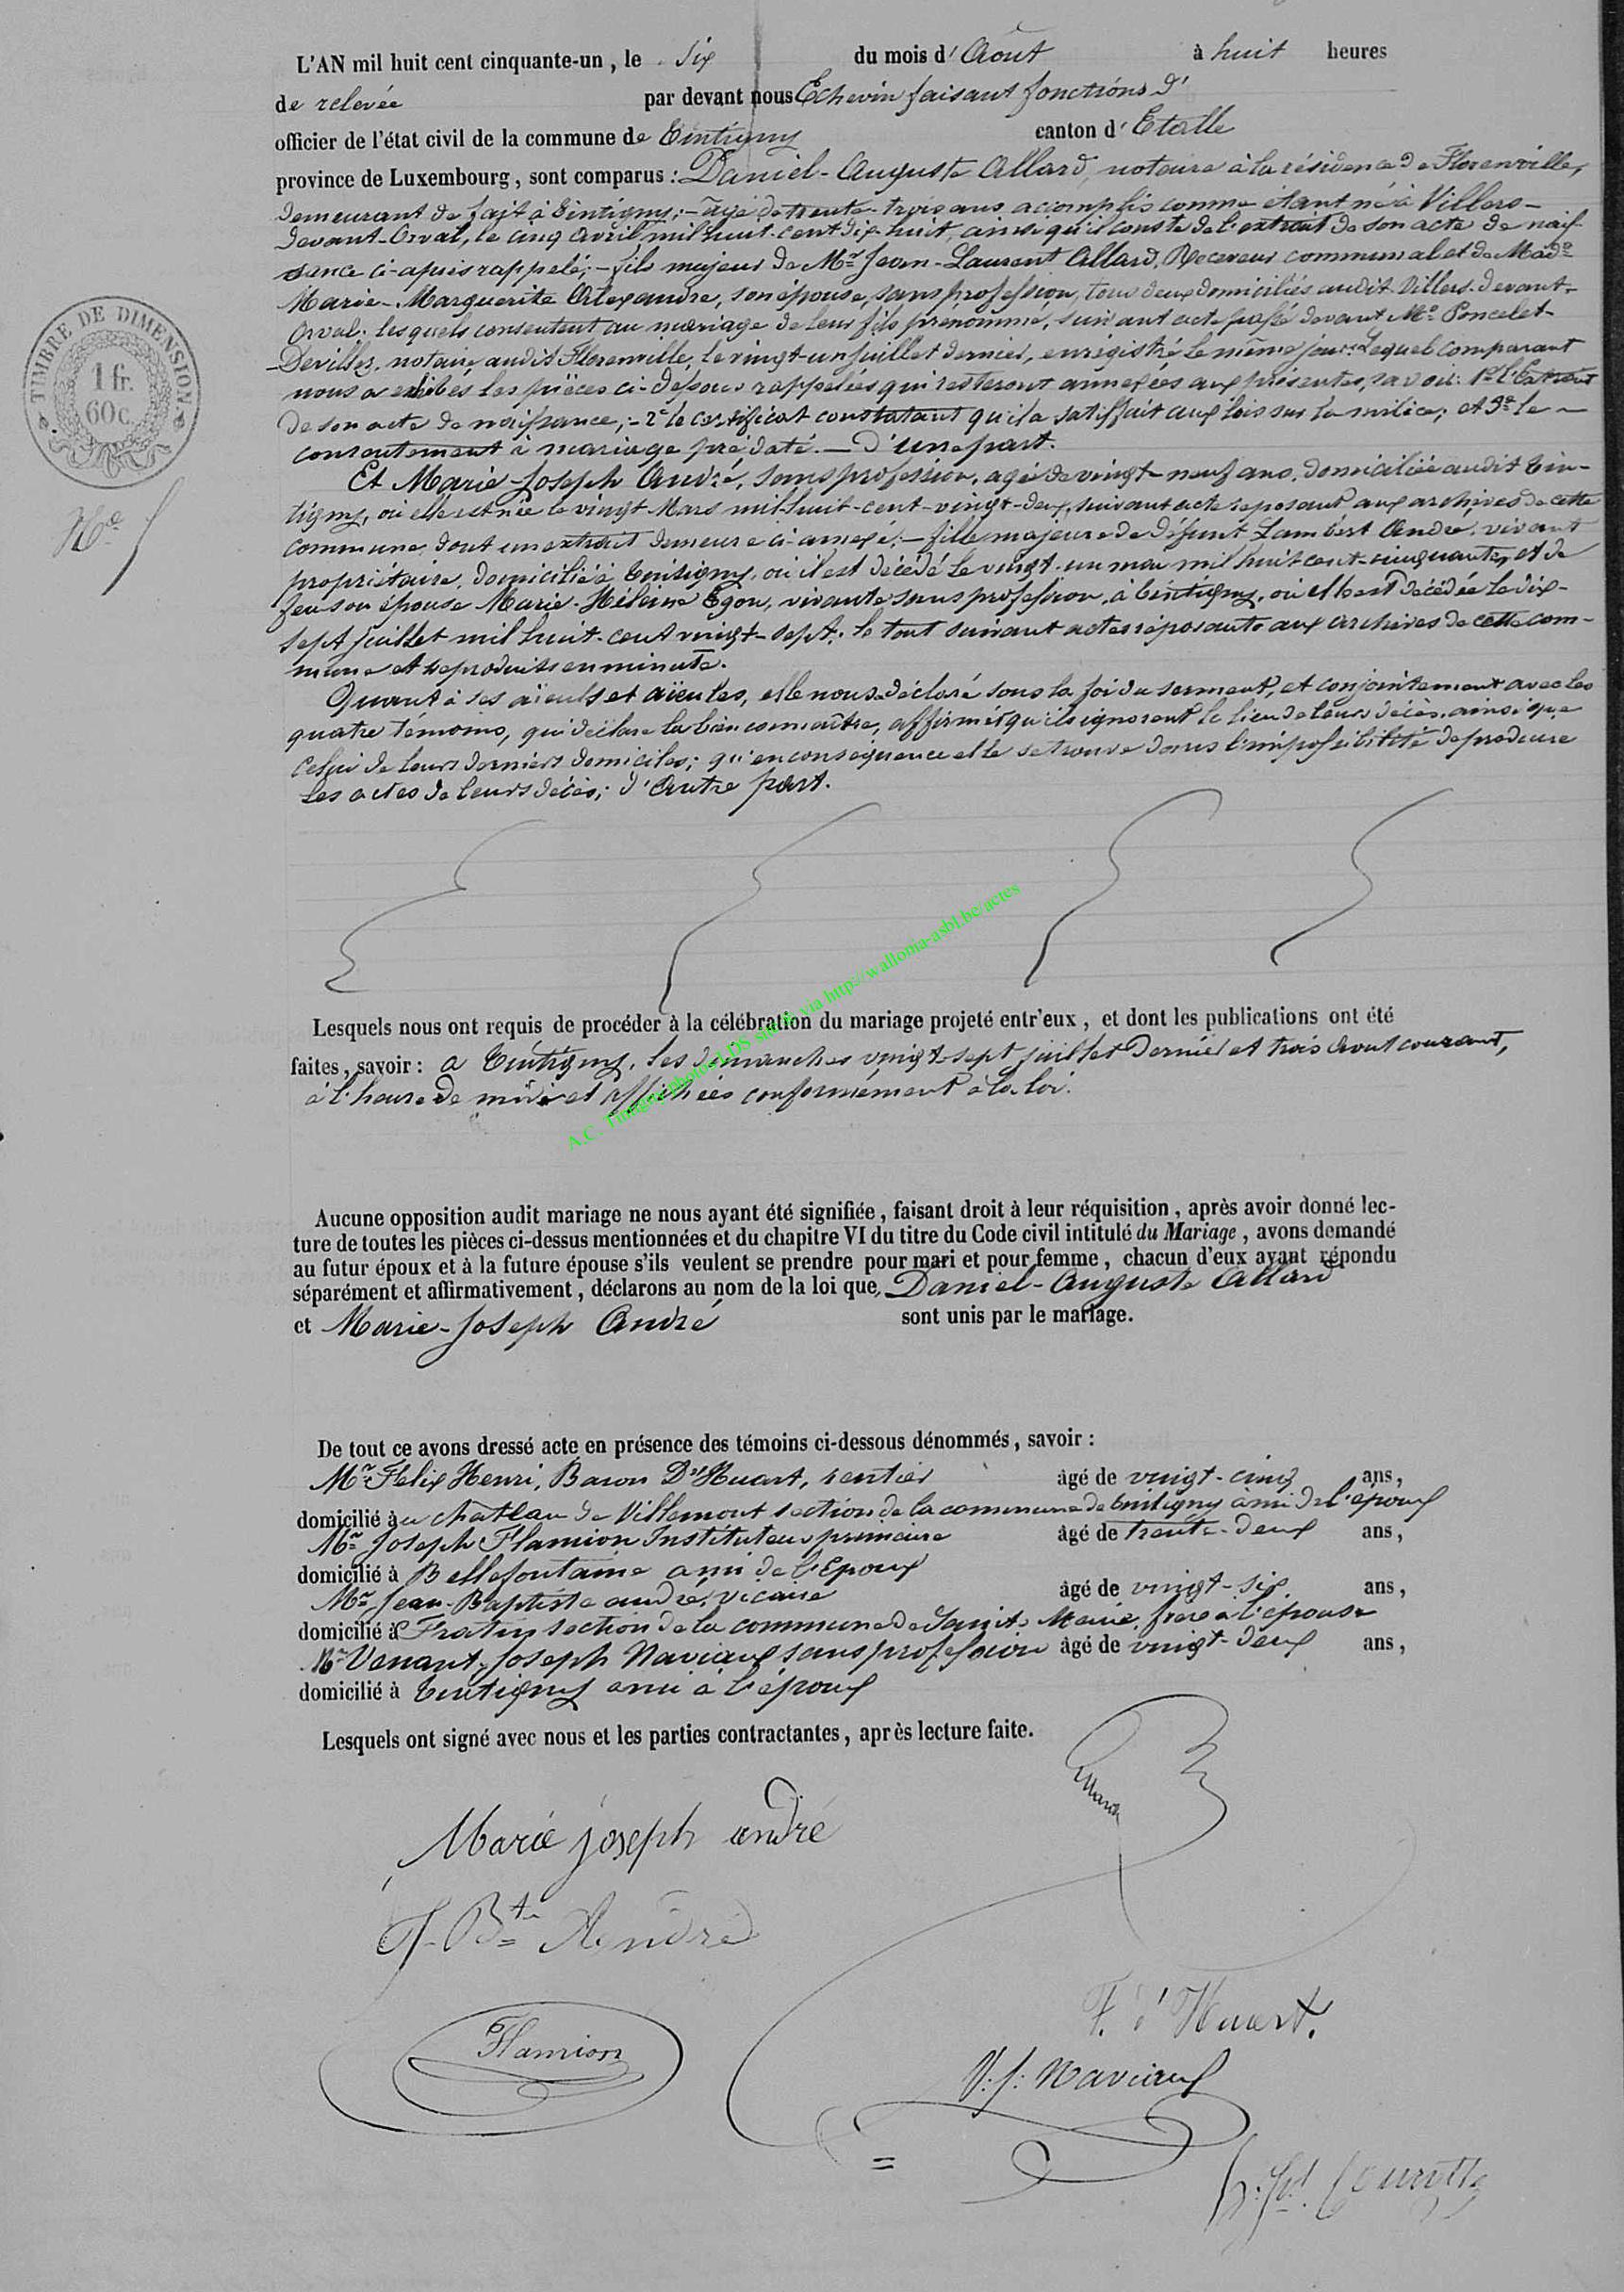 L'AN mil huit cent cinquante-un, le six du mois d'Août à huit heures
de relevée par devant nous Echevin faisant fonctions d'
officier de l'état civil de la commune de Tintigny canton d'Etalle
province de Luxembourg, sont comparus : Daniel-Auguste Allard, notaire à la résidence de Florenville,
demeurant de fait à Tintigny; - âgé de trente-trois ans accomplis comme étant né à Villers-
devant-Orval, le cinq avril mil huit-cent dix-huit, ainsi qu'il conste de l'extrait de son acte de nais-
sance ci-après rappelé; - fils majeur de Mr Jean-Laurent Allard, Receveur communal et de Made
Marie-Marguerite Alexandre, son épouse, sans profession, tous deux domiciliés audit Villers-devant-
Orval; lesquels consentent au mariage de leur fils prénommé, suivant acte passé devant Me Poncelet-
Devilles, notaire audit Florenville, le vingt-un juillet dernier, enregistré le même jour. Lequel comparant
nous a exhibés les pièces ci-dessous rappelées qui resteront annexées aux présentes, savoir: 1° l'Extrait
de son acte de naissance; - 2° le certificat constatant qu'il a satisfait aux lois sur la milice; et 3° le -
consentement à mariage prédaté. - D'une part.
Et Marie-Joseph André, sans profession, agée de vingt-neuf ans, domiciliée audit Tin-
tigny, où elle est née le vingt Mars mil huit-cent-vingt-deux, suivant acte reposant aux archives de cette
commune, dont un extrait demeure ci-annexé; - fille majeure de défunt Lambert André, vivant
propriétaire, domicilié à Tintigny, où il est décédé le vingt-un mai mil huit cent-cinquante, et de
feu son épouse Marie-Hélène Egon, vivante sans profession, à Tintigny, où elle est décédée le dix-
sept juillet mil huit-cent vingt-sept; le tout suivant actes réposants aux archives de cette com-
mune et reproduits en minute.
Quant à ses aïeuls et aïeules, elle nous a déclaré sous la foi du serment, et conjointement avec les
quatre témoins, qui déclare la bien connaître, affirmé qu'ils ignorent le lieu de leurs décès, ainsi que
celui de leurs derniers domiciles; qu'en conséquence elle se trouve dans l'impossibilité de produire
les actes de leurs décès; d'Autre part.
Lesquels nous ont requis de procéder à la célébration du mariage projeté entr'eux, et dont les publications ont été
faites, savoir : à Tintigny, les dimanches vingt-sept juillet dernier et trois Août courant,
à l'heure de midi et affichées conformément à la loi.
Aucune opposition audit mariage ne nous ayant été signifiée, faisant droit à leur réquisition, après avoir donné lec-
ture de toutes les pièces ci-dessus mentionnées et du chapitre VI du titre du Code civil intitulé du Mariage, avons demandé
au futur époux et à la future épouse s'ils veulent se prendre pour mari et pour femme, chacun d'eux ayant répondu
séparément et affirmativement, déclarons au nom de la loi que, Daniel-Auguste Allard
et Marie-Joseph André sont unis par le mariage.
De tout ce avons dressé acte en présence des témoins ci-dessous dénommés, savoir :
Mr Felix Henri, Baron D'Huart, rentier âgé de vingt-cinq ans,
domicilié au château de Villemont section de la commune de Tintigny ami de l'époux
Mr Joseph Flamion Instituteur primaire âgé de trente-deux ans,
domicilié à Bellefontaine ami de l'Epoux
Mr Jean-Baptiste andré, vicaire âgé de vingt-six ans,
domicilié à Fratin section de la commune de Sainte Marie, frère à l'épouse
Mr Venant-Joseph Naviaux sans profession âgé de vingt-deux ans,
domicilié à Tintigny ami à l'époux
Lesquels ont signé avec nous et les parties contractantes, après lecture faite.
Allard
Marie joseph andré
J-Bte André
F. d'Huart.
Flamion
V: J: Naviaux
TIMBRE DE DIMENSION
1 fr.
60 c.
A.C. Tintigny photos LDS via http://wallonia-asbl.be/actes